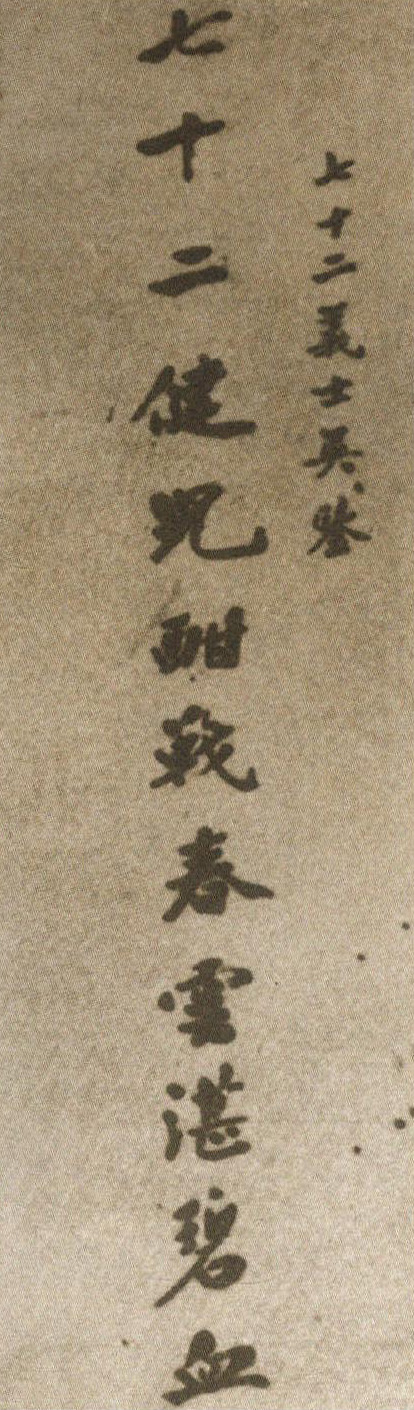 七十二義士英鑒
七十二健児酣戰春雲湛碧血